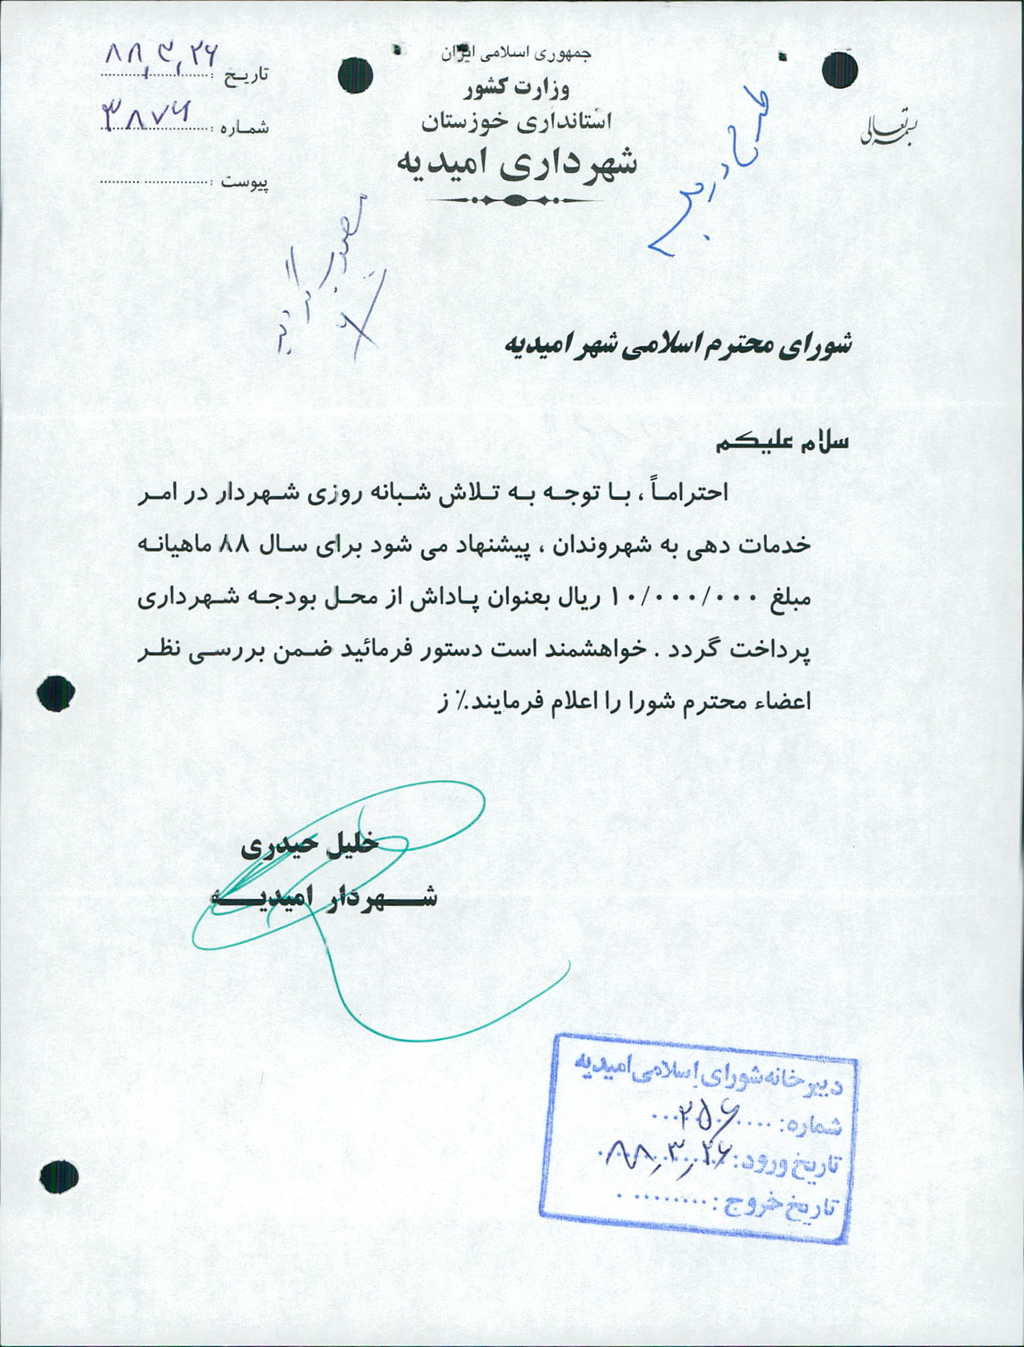 بسمه تعالی
جمهوری اسلامی ایران
وزارت کشور
استانداری خوزستان
شهرداری امیدیه
تاریخ : ۸۸,۳,۲۶
شماره : ۳۸۷۶
پیوست :
طرح در
مصوب
گردید
شورای محترم اسلامی شهر امیدیه
سلام علیکم
احتراماً ، با توجه به تلاش شبانه روزی شهردار در امر
خدمات دهی به شهروندان ، پیشنهاد می شود برای سال ۸۸ ماهیانه
مبلغ ۱۰/۰۰۰/۰۰۰ ریال بعنوان پاداش از محل بودجه شهرداری
پرداخت گردد . خواهشمند است دستور فرمائید ضمن بررسی نظر
اعضاء محترم شورا را اعلام فرمایند.٪ ز
خلیل حیدری
شهردار امیدیه
دبیرخانه شورای اسلامی امیدیه
شماره: ۲۵۶
تاریخ ورود: ۸۸,۳,۲۶
تاریخ خروج :